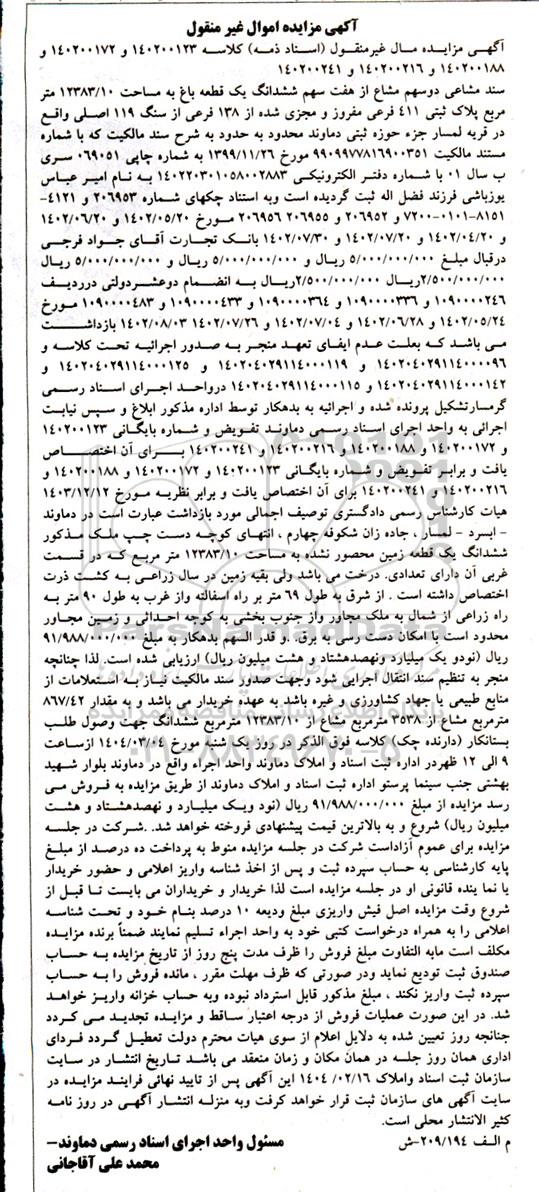 آگهی مزایده اموال غیر منقول
آگهی مزایده مال غیرمنقول (اسناد ذمه) کلاسه ۱۴۰۲۰۰۱۲۳ و ۱۴۰۲۰۰۱۷۲ و
۱۴۰۲۰۰۱۸۸ و ۱۴۰۲۰۰۲۱۶ و ۱۴۰۲۰۰۲۴۱
سند مشاعی دوسهم مشاع از هفت سهم ششدانگ یک قطعه باغ به مساحت ۱۲۳۸۳/۱۰ متر
مربع پلاک ثبتی ۴۱۱ فرعی مفروز و مجزی شده از ۱۳۸ فرعی از سنگ ۱۱۹ اصلی واقع
در قریه لمسار جزء حوزه ثبتی دماوند محدود به حدود به شرح سند مالکیت که با شماره
مستند مالکیت ۹۹۰۹۹۷۷۸۱۶۹۰۰۳۵۱ مورخ ۱۳۹۹/۱۱/۲۶ به شماره چاپی ۰۶۹۰۵۱ سری
ب سال ۰۱ با شماره دفتر الکترونیکی ۱۴۰۲۲۰۳۰۱۰۵۸۰۰۲۸۸۳ به نام امیر عباس
یوزباشی فرزند فضل اله ثبت گردیده است وبه استناد چکهای شماره ۲۰۶۹۵۳ و ۴۱۲۱-
۸۱۵۱-۰۱۰۱-۷۲۰۰ و ۲۰۶۹۵۲ و ۲۰۶۹۵۵ و ۲۰۶۹۵۶ مورخ ۱۴۰۲/۰۵/۲۰ و ۱۴۰۲/۰۶/۲۰
و ۱۴۰۲/۰۴/۲۰ و ۱۴۰۲/۰۷/۲۰ و ۱۴۰۲/۰۷/۳۰ بانک تجارت آقای جواد فرجی
درقبال مبلغ ۵/۰۰۰/۰۰۰/۰۰۰ ریال و ۵/۰۰۰/۰۰۰/۰۰۰ ریال و ۵/۰۰۰/۰۰۰/۰۰۰ ریال
۲/۵۰۰/۰۰۰/۰۰۰ریال ۲/۵۰۰/۰۰۰/۰۰۰ریال به انضمام دوعشردولتی درردیف
۱۰۹۰۰۰۰۲۴۶ و ۱۰۹۰۰۰۰۳۳۶ و ۱۰۹۰۰۰۰۳۶۴ و ۱۰۹۰۰۰۰۴۳۳ و ۱۰۹۰۰۰۰۴۸۳ مورخ
۱۴۰۲/۰۵/۲۴ و ۱۴۰۲/۰۶/۲۸ و ۱۴۰۲/۰۷/۰۴ و ۱۴۰۲/۰۷/۲۶ ۱۴۰۲/۰۸/۰۳ بازداشت
می باشد که بعلت عدم ایفای تعهد منجر به صدور اجرائیه تحت کلاسه و
۱۴۰۲۰۴۰۲۹۱۱۴۰۰۰۰۹۶ و ۱۴۰۲۰۴۰۲۹۱۱۴۰۰۰۱۱۹ و ۱۴۰۲۰۴۰۲۹۱۱۴۰۰۰۱۲۵ و
۱۴۰۲۰۴۰۲۹۱۱۴۰۰۰۱۴۲ و ۱۴۰۲۰۴۰۲۹۱۱۴۰۰۰۱۱۵ درواحد اجرای اسناد رسمی
گرمسارتشکیل پرونده شده و اجرائیه به بدهکار توسط اداره مذکور ابلاغ و سپس نیابت
اجرائی به واحد اجرای اسناد رسمی دماوند تفویض و شماره بایگانی ۱۴۰۲۰۰۱۲۳
و ۱۴۰۲۰۰۱۷۲ و ۱۴۰۲۰۰۱۸۸ و ۱۴۰۲۰۰۲۱۶ و ۱۴۰۲۰۰۲۴۱ برای آن اختصاص
یافت و برابر تفویض و شماره بایگانی ۱۴۰۲۰۰۱۲۳ و ۱۴۰۲۰۰۱۷۲ و ۱۴۰۲۰۰۱۸۸ و
۱۴۰۲۰۰۲۱۶ و ۱۴۰۲۰۰۲۴۱ برای آن اختصاص یافت و برابر نظریه مورخ ۱۴۰۳/۱۲/۱۲
هیات کارشناس رسمی دادگستری توصیف اجمالی مورد بازداشت عبارت است در دماوند
- ابسرد - لمسار ، جاده زان شکوفه چهارم ، انتهای کوچه دست چپ ملک مذکور
ششدانگ یک قطعه زمین محصور نشده به مساحت ۱۲۳۸۳/۱۰ متر مربع که در قسمت
غربی آن دارای تعدادی. درخت می باشد ولی بقیه زمین در سال زراعی به کشت ذرت
اختصاص داشته است . از شرق به طول ۶۹ متر بر راه اسفالته واز غرب به طول ۹۰ متر به
راه زراعی از شمال به ملک مجاور واز جنوب بخشی به کوچه احداثی و زمین مجاور
محدود است با امکان دست رسی به برق. .و قدر السهم بدهکار به مبلغ ۹۱/۹۸۸/۰۰۰/۰۰۰
ریال (نودو یک میلیارد ونهصدهشتاد و هشت میلیون ریال) ارزیابی شده است. لذا چنانچه
منجر به تنظیم سند انتقال اجرایی شود وجهت صدور سند مالکیت نیاز به استعلامات از
منابع طبیعی یا جهاد کشاورزی و غیره باشد به عهده خریدار می باشد و به مقدار ۸۶۷/۴۲
مترمربع مشاع از ۳۵۳۸ مترمربع مشاع از ۱۲۳۸۳/۱۰ مترمربع ششدانگ جهت وصول طلب
بستانکار (دارنده چک) کلاسه فوق الذکر در روز یک شنبه مورخ ۱۴۰۴/۰۳/۰۴ ازساعت
۹ الی ۱۲ ظهردر اداره ثبت اسناد و املاک دماوند واحد اجراء واقع در دماوند بلوار شهید
بهشتی جنب سینما پرستو اداره ثبت اسناد و املاک دماوند از طریق مزایده به فروش می
رسد مزایده از مبلغ ۹۱/۹۸۸/۰۰۰/۰۰۰ ریال (نود ویک میلیارد و نهصدهشتاد و هشت
میلیون ریال) شروع و به بالاترین قیمت پیشنهادی فروخته خواهد شد. .شرکت در جلسه
مزایده برای عموم آزاداست شرکت در جلسه مزایده منوط به پرداخت ده درصد از مبلغ
پایه کارشناسی به حساب سپرده ثبت و پس از اخذ شناسه واریز اعلامی و حضور خریدار
یا نما ینده قانونی او در جلسه مزایده است لذا خریدار و خریداران می بایست تا قبل از
شروع وقت مزایده اصل فیش واریزی مبلغ ودیعه ۱۰ درصد بنام خود و تحت شناسه
اعلامی را به همراه درخواست کتبی خود به واحد اجراء تسلیم نمایند ضمناً برنده مزایده
مکلف است مابه التفاوت مبلغ فروش را ظرف مدت پنج روز از تاریخ مزایده به حساب
صندوق ثبت تودیع نماید ودر صورتی که ظرف مهلت مقرر ، مانده فروش را به حساب
سپرده ثبت واریز نکند ، مبلغ مذکور قابل استرداد نبوده وبه حساب خزانه واریز خواهد
شد. در این صورت عملیات فروش از درجه اعتبار ساقط و مزایده تجدید می گردد
چنانچه روز تعیین شده به دلایل اعلام از سوی هیات محترم دولت تعطیل گردد فردای
اداری همان روز جلسه در همان مکان و زمان منعقد می باشد تاریخ انتشار در سایت
سازمان ثبت اسناد واملاک ۱۴۰۴ /۰۲/۱۶ این آگهی پس از تایید نهائی فرایند مزایده در
سایت آگهی های سازمان ثبت قرار خواهد گرفت وبه منزله انتشار آگهی در روز نامه
کثیر الانتشار محلی است.
م الف ۲۰۹/۱۹۴-ش
مسئول واحد اجرای اسناد رسمی دماوند-
محمد علی آقاجانی